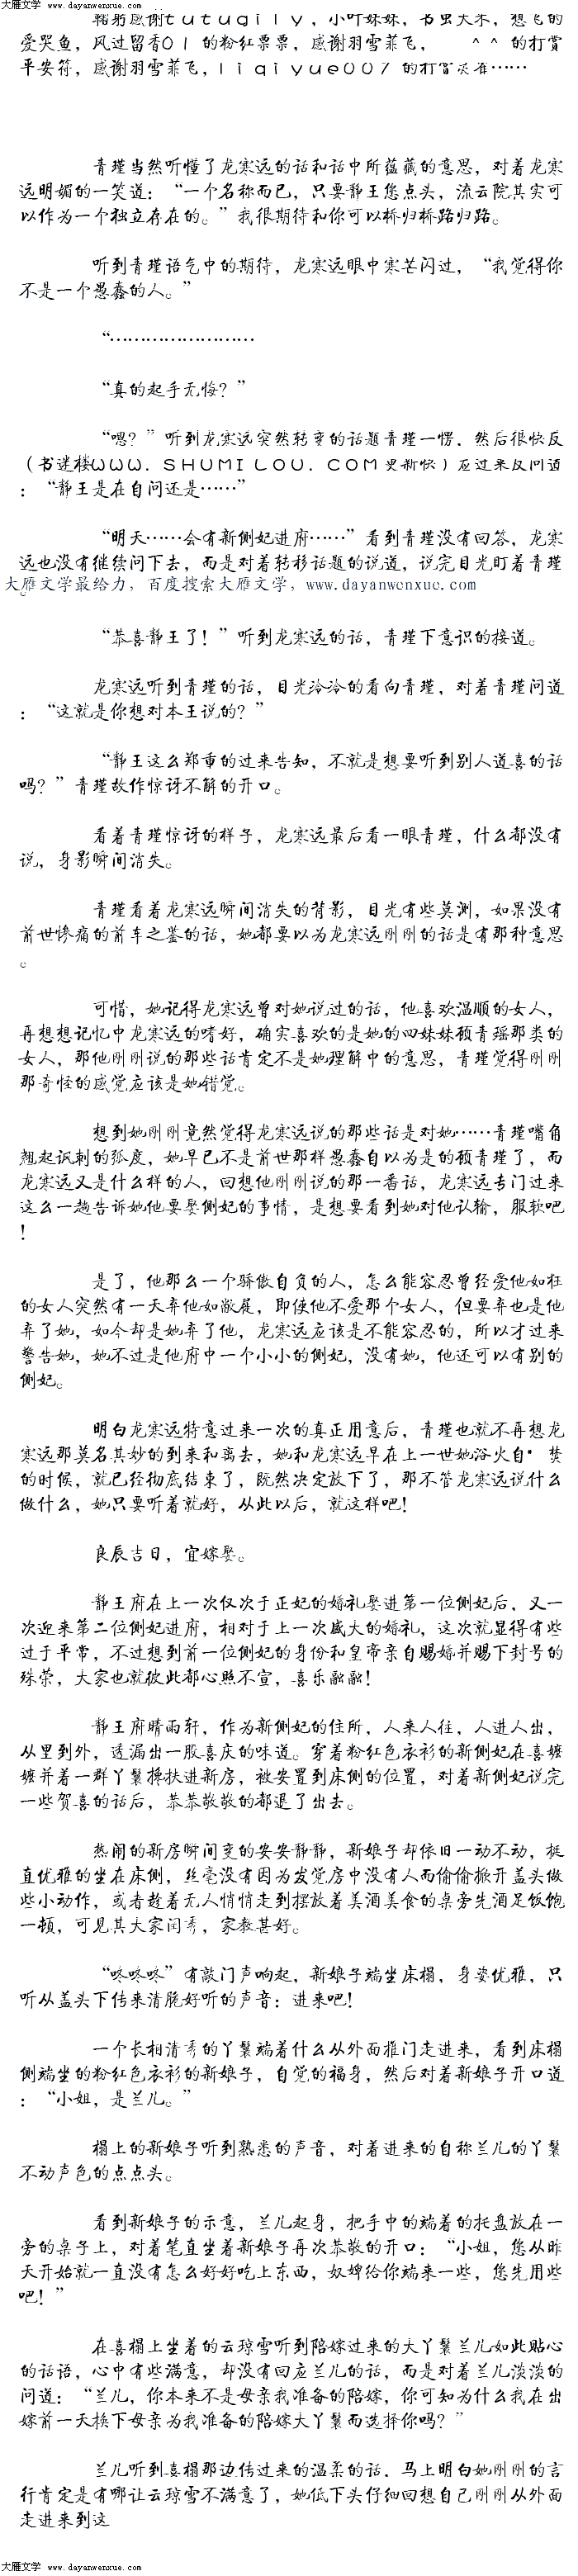 大雁文学 www.dayanwenxue.com
鞠躬感谢tutugily，小叶妹妹，书虫大米，想飞的
爱哭鱼，风过留香01的粉红票票，感谢羽雪菲飞， ^^的打赏
平安符，感谢羽雪菲飞，liqiyue007的打赏……
青瑾当然听懂了龙寒远的话和话中所蕴藏的意思，对着龙寒
远明媚的一笑道：“一个名称而已，只要静王您点头，流云院其实可
以作为一个独立存在的。”我很期待和你可以桥归桥路归路。
听到青瑾语气中的期待，龙寒远眼中寒芒闪过，“我觉得你
不是一个愚蠢的人。”
“……………………
“真的起手无悔？”
“嗯？”听到龙寒远突然转变的话题青瑾一愣，然后很快反
（书迷楼WWW.SHUMILOU.COM更新快）应过来反问道
：“静王是在自问还是……”
“明天……会有新侧妃进府……”看到青瑾没有回答，龙寒
远也没有继续问下去，而是对着转移话题的说道，说完目光盯着青瑾
。
大雁文学最给力，百度搜索大雁文学，www.dayanwenxue.com
“恭喜静王了！”听到龙寒远的话，青瑾下意识的接道。
龙寒远听到青瑾的话，目光泠泠的看向青瑾，对着青瑾问道
：“这就是你想对本王说的？”
“静王这么郑重的过来告知，不就是想要听到别人道喜的话
吗？”青瑾故作惊讶不解的开口。
看着青瑾惊讶的样子，龙寒远最后看一眼青瑾，什么都没有
说，身影瞬间消失。
青瑾看着龙寒远瞬间消失的背影，目光有些莫测，如果没有
前世惨痛的前车之鉴的话，她都要以为龙寒远刚刚的话是有那种意思
。
可惜，她记得龙寒远曾对她说过的话，他喜欢温顺的女人，
再想想记忆中龙寒远的嗜好，确实喜欢的是她的四妹妹顾青瑶那类的
女人，那他刚刚说的那些话肯定不是她理解中的意思，青瑾觉得刚刚
那奇怪的感觉应该是她错觉。
想到她刚刚竟然觉得龙寒远说的那些话是对她……青瑾嘴角
翘起讽刺的弧度，她早已不是前世那样愚蠢自以为是的顾青瑾了，而
龙寒远又是什么样的人，回想他刚刚说的那一番话，龙寒远专门过来
这么一趟告诉她他要娶侧妃的事情，是想要看到她对他认输，服软吧
！
是了，他那么一个骄傲自负的人，怎么能容忍曾经爱他如狂
的女人突然有一天弃他如敝屣，即使他不爱那个女人，但要弃也是他
弃了她，如今却是她弃了他，龙寒远应该是不能容忍的，所以才过来
警告她，她不过是他府中一个小小的侧妃，没有她，他还可以有别的
侧妃。
明白龙寒远特意过来一次的真正用意后，青瑾也就不再想龙
寒远那莫名其妙的到来和离去，她和龙寒远早在上一世她浴火自·焚
的时候，就已经彻底结束了，既然决定放下了，那不管龙寒远说什么
做什么，她只要听着就好，从此以后，就这样吧！
良辰吉日，宜嫁娶。
静王府在上一次仅次于正妃的婚礼娶进第一位侧妃后，又一
次迎来第二位侧妃进府，相对于上一次盛大的婚礼，这次就显得有些
过于平常，不过想到前一位侧妃的身份和皇帝亲自赐婚并赐下封号的
殊荣，大家也就彼此都心照不宣，喜乐融融！
静王府晴雨轩，作为新侧妃的住所，人来人往，人进人出，
从里到外，透漏出一股喜庆的味道。穿着粉红色衣衫的新侧妃在喜嬷
嬷并着一群丫鬟搀扶进新房，被安置到床侧的位置，对着新侧妃说完
一些贺喜的话后，恭恭敬敬的都退了出去。
热闹的新房瞬间变的安安静静，新娘子却依旧一动不动，挺
直优雅的坐在床侧，丝毫没有因为发觉房中没有人而偷偷掀开盖头做
些小动作，或者趁着无人悄悄走到摆放着美酒美食的桌旁先酒足饭饱
一顿，可见其大家闺秀，家教甚好。
“咚咚咚”有敲门声响起，新娘子端坐床榻，身姿优雅，只
听从盖头下传来清脆好听的声音：进来吧！
一个长相清秀的丫鬟端着什么从外面推门走进来，看到床榻
侧端坐的粉红色衣衫的新娘子，自觉的福身，然后对着新娘子开口道
：“小姐，是兰儿。”
榻上的新娘子听到熟悉的声音，对着进来的自称兰儿的丫鬟
不动声色的点点头。
看到新娘子的示意，兰儿起身，把手中的端着的托盘放在一
旁的桌子上，对着笔直坐着新娘子再次恭敬的开口：“小姐，您从昨
天开始就一直没有怎么好好吃上东西，奴婢给你端来一些，您先用些
吧！”
在喜榻上坐着的云琼雪听到陪嫁过来的大丫鬟兰儿如此贴心
的话语，心中有些满意，却没有回应兰儿的话，而是对着兰儿淡淡的
问道：“兰儿，你本来不是母亲我准备的陪嫁，你可知为什么我在出
嫁前一天换下母亲为我准备的陪嫁大丫鬟而选择你吗？”
兰儿听到喜榻那边传过来的温柔的话，马上明白她刚刚的言
行肯定是有哪让云琼雪不满意了，她低下头仔细回想自己刚刚从外面
走进来到这
大雁文学 www.dayanwenxue.com